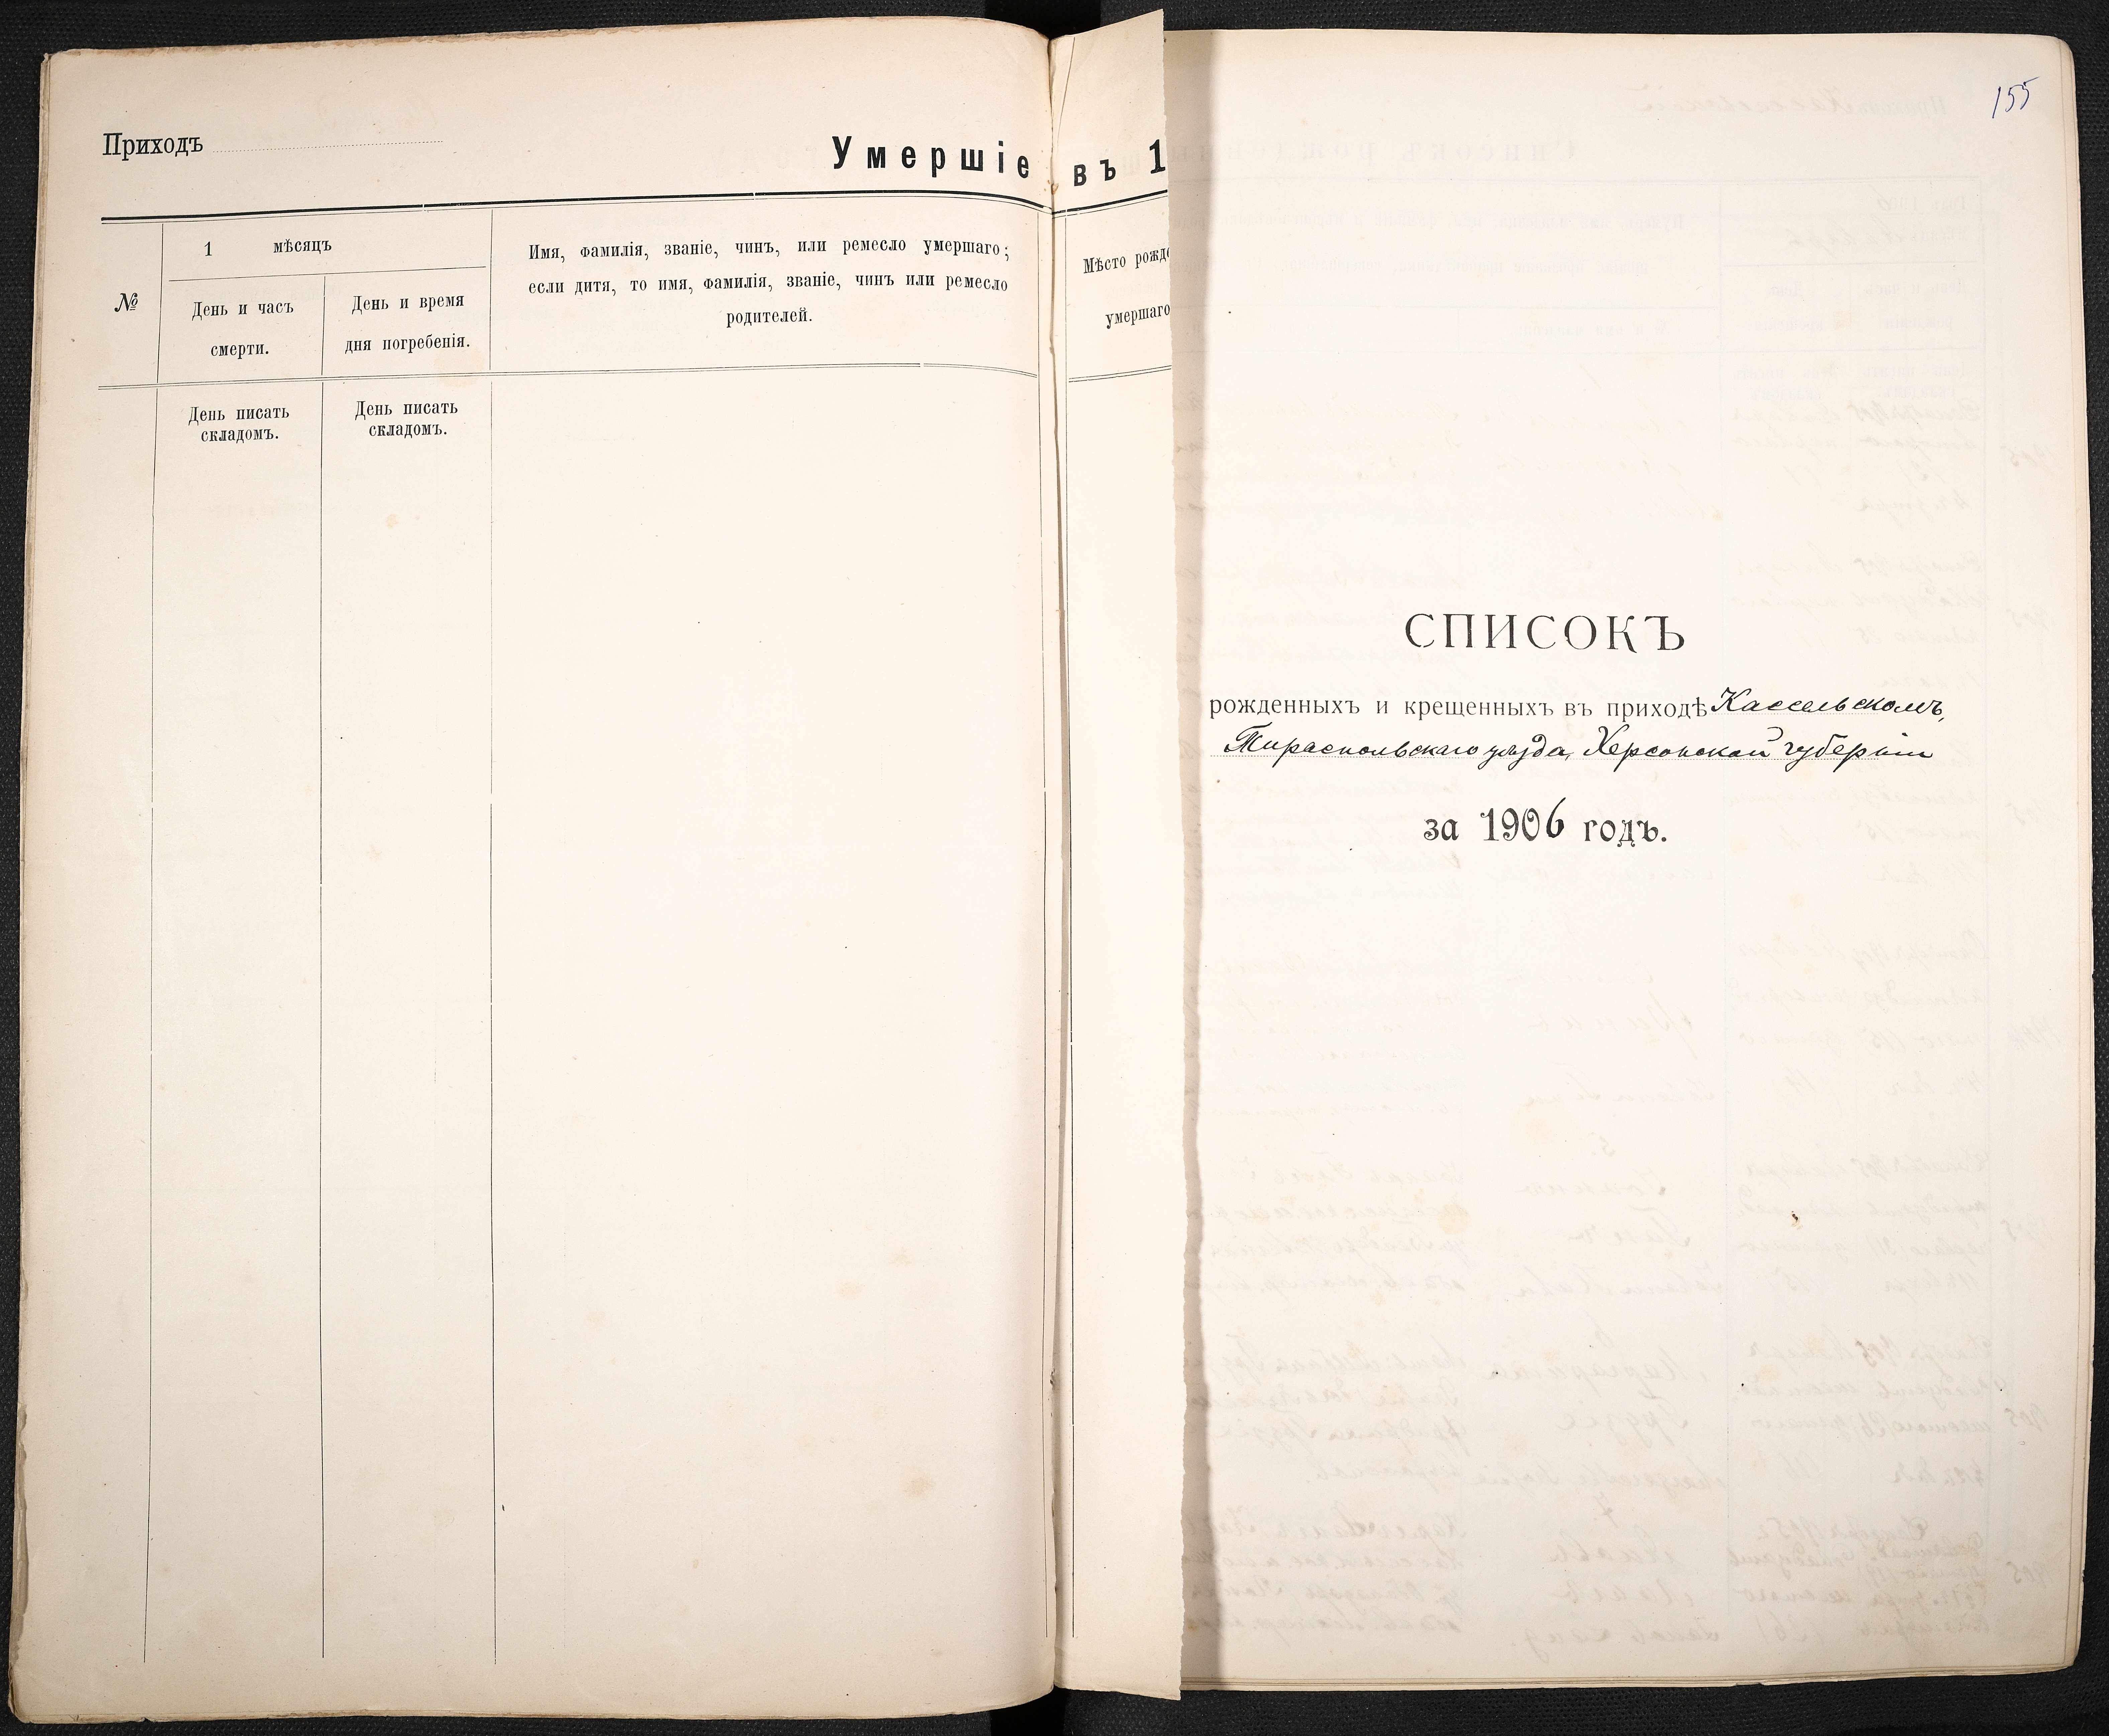 Приходъ
Умершіе въ 1
№
1 мѣсяцъ
День и часъ
смерти.
День и время
дня погребенія.
Имя, фамилія, званіе, чинъ, или ремесло умершаго;
если дитя, то имя, фамилія, званіе, чинъ или ремесло
родителей.
Мѣсто рожде
умершаго
День писать
складомъ.
День писать
складомъ.
155
СПИСОКЪ
рожденныхъ и крещенныхъ въ приходѣ Кассельскомъ,
Тираспольскаго уѣзда, Херсонской губерніи
за 1906 годъ.